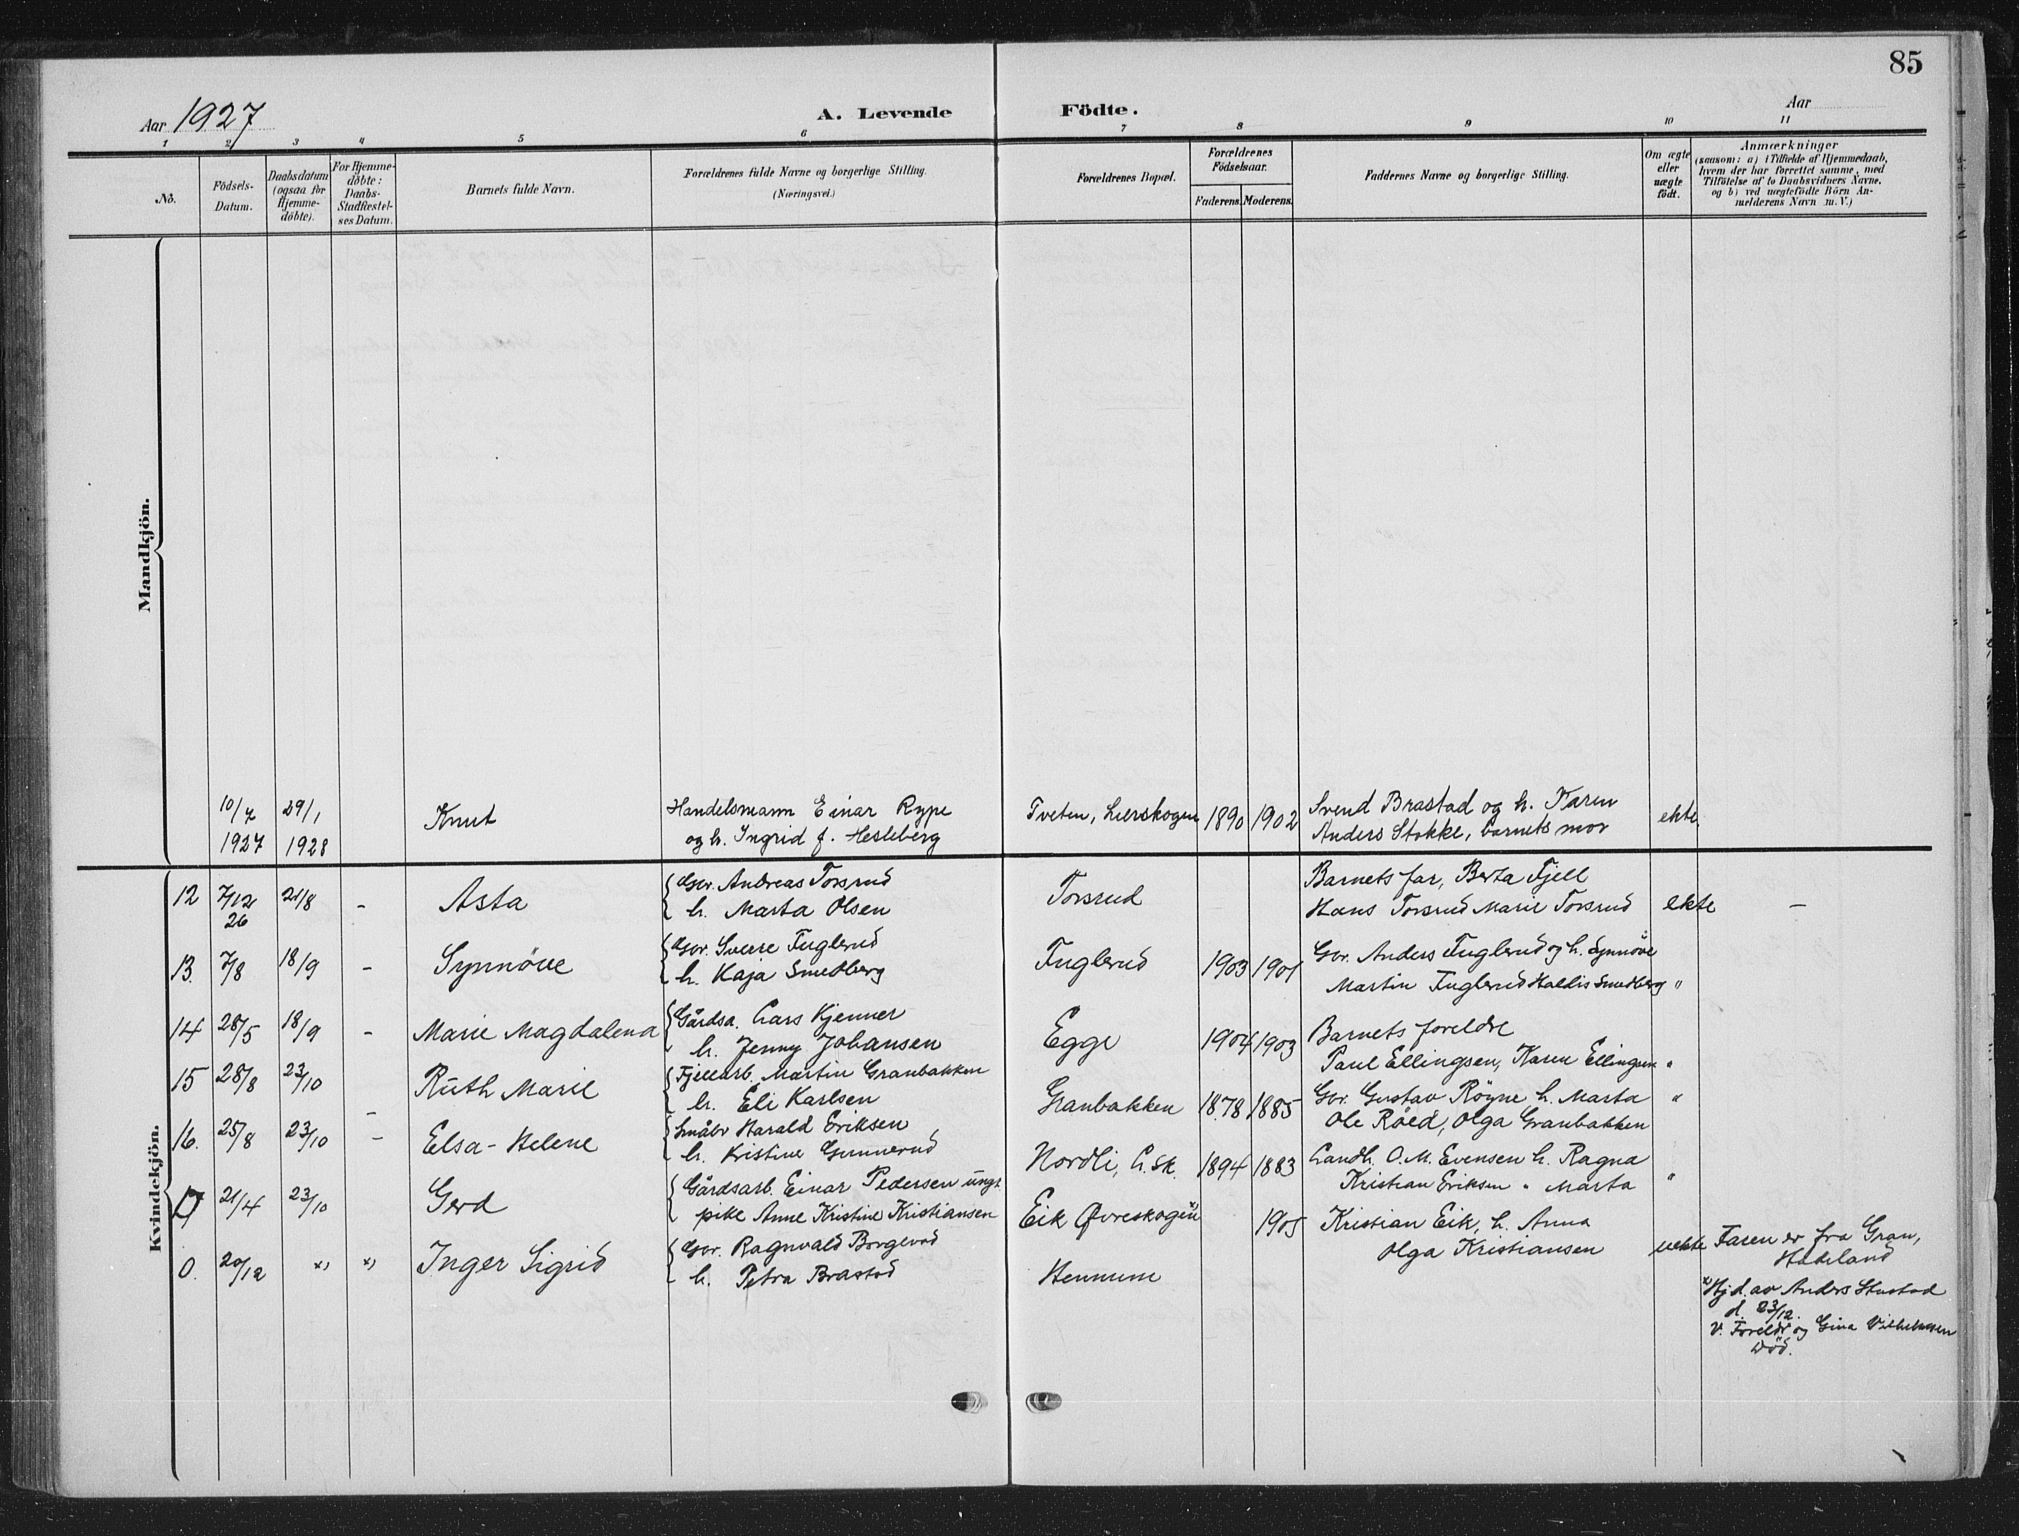 85
Aar 1927
A. Levende Födte.
Aar
1 2 3 4 5 6 7 8 9 10 11
No.
Födsels-Datum.
Daabsdatum (ogsaa for Hjemmedöbte).
For Hjemmedöbte: Daabs-Stadfestelses Datum.
Barnets fulde Navn.
Forældrenes fulde Navne og borgerlige Stilling. (Næringsvei.)
Forældrenes Bopæl.
Forældrenes Födselsaar.
Faderens. Moderens.
Faddernes Navne og borgerlige Stilling.
Om ægte eller uægte födt.
Anmærkninger
(saasom: a) i Tilfælde af Hjemmedaab, hvem der har forrettet samme, med Tilföielse af to Daabsvidners Navne, og b) ved uægtefödte Börn Anmelderens Navn m. V.)
Mandkjön.
10/7 1927 29/1 1928 Knut
Handelsmann Einar Rype
og h. Ingrid f. Hesleberg
Tveten, Lierskogen 1890 1902
Svend Brastad og h. Karen
Anders Stokke, barnets mor
ekte.
Kvindekjön.
12 7/12 26 21/8 - Asta
Gbr. Andreas Torsrud
h. Marta Olsen
Torsrud
Barnets far, Berta Fjell
Hans Torsrud Marie Torsrud
ekte -
13. 7/8 18/9 - Synnöve
Gbr. Sverre Fuglerud
h. Kaja Smedberg
Fuglerud 1903 1901
Gbr. Anders Fuglerud og h. Synnöve
Martin Fuglerud Hallis Smedberg "
14 28/5 18/9 - Marie Magdalena
Gårdsa. Lars Kjenner
h. Jenny Johansen
Egge 1904 1903
Barnets foreldre
Paul Ellingsen, Karen Ellingsen "
15 28/8 23/10 - Ruth Marie
Fjellarb. Martin Granbakken
h. Eli Karlsen
Granbakken 1878 1885
Gbr. Gustav Röyne h. Marta
Ole Röed, Olga Granbakken
"
16. 25/8 23/10 - Elsa-Helene
Småbr Harald Eriksen
h. Kristine Gunnerud
Nordli, L.sk. 1894 1883
Landh. O. M. Evensen h. Ragna
Kristian Eriksen " Marta
"
17 21/4 23/10 Gerd
Gårdsarb. Einar Pedersen ungk
pike Anne Kristine Kristiansen
Eik Øvreskogen 1905
Kristian Eik, h. Anna
Olga Kristiansen
uekte Faren er fra Gran,
Hadeland
0. 20/12 x) x) Inger Sigrid
Gbr. Ragnvald Borgerud
h. Petra Brastad
Hennum
x) Hjd. av Anders
d. 23/12.
V. Foreldr og Gina Vilhelmsen
Död.